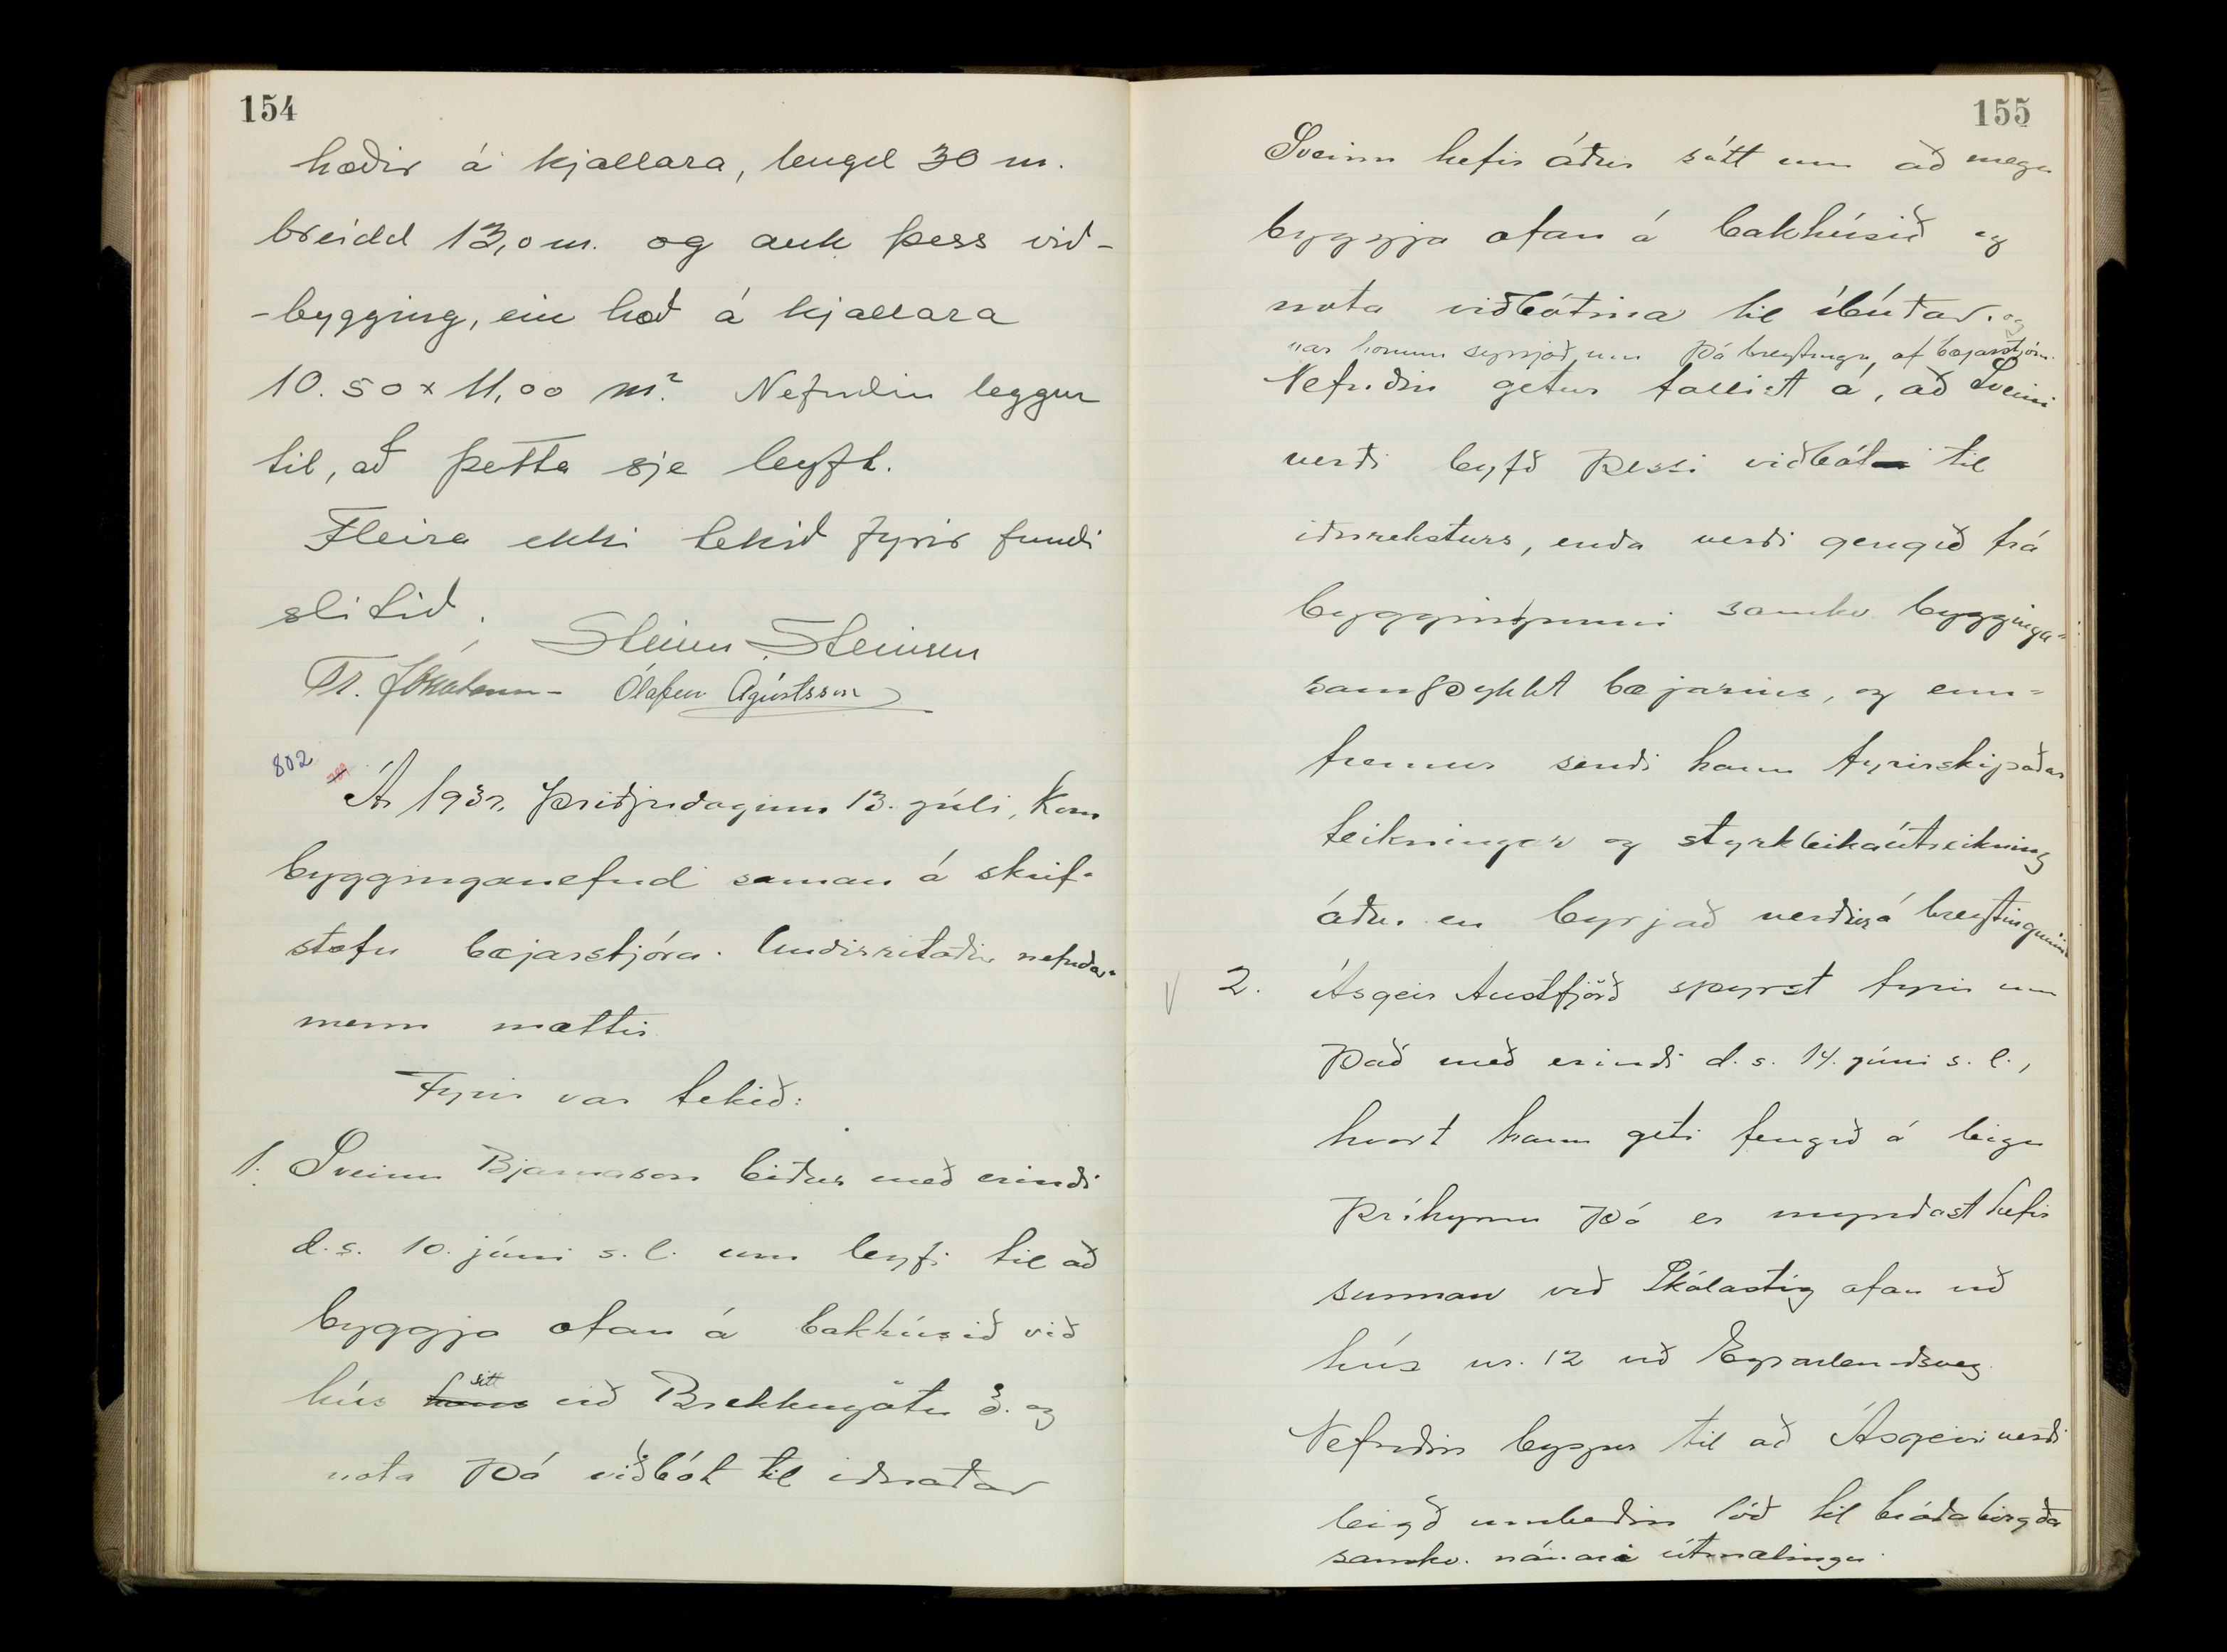 154
hæðir á kjallara, lengd 30 m.
breidd 13,0 m. og auk þess við-
-bygging, ein hæð á kjallara
10.50 x 11,00 m². Nefndin leggur
til, að þetta sje leyft.
Fleira ekki tekið fyrir fundi
slitið.
Steinn Steinsen
Ólafur Ágústsson
802
Ár 1937, þriðjudaginn 13. júlí, kom
bygginganefnd saman á skrif-
stofu bæjarstjóra. Undirritaðir nefndar-
menn mættir
Fyrir var tekið:
1. Sveinn Bjarnason biður með erindi
d.s. 10. júní s.l. um leyfi til að
byggja ofan á bakhúsið við
hús sitt við Brekkugötu 3. og
nota þá viðbót til iðnaðar
155
Sveinn hefir áður sótt um að mega
byggja ofan á bakhúsið og
nota viðbótina til íbúðar. og
var honum synjað um þá breytingu, af bæjarstjórn.
Nefndin getur fallist á, að Sveini
verði leyfð þessi viðbót til
iðnreksturs, enda verði gengið frá
byggingunni samkv. bygginga-
samþykkt bæjarins, og enn-
fremur sendi hann fyrirskipaðar
teikningar og styrkleikaútreikning
áður en byrjað verður á breytingunni
2. Ásgeir Austfjörð spyrst fyrir um
það með erindi d.s. 14. júní s.l.,
hvort hann geti fengið á leigu
þríhyrnu þá er myndast hefir
sunnan við Skólastíg ofan við
hús nr. 12 við Eyrarlandsveg.
Nefndin leggur til að Ásgeiri verði
leigð umbeðin lóð til bráðabirgða
samkv. nánari útmælingu.